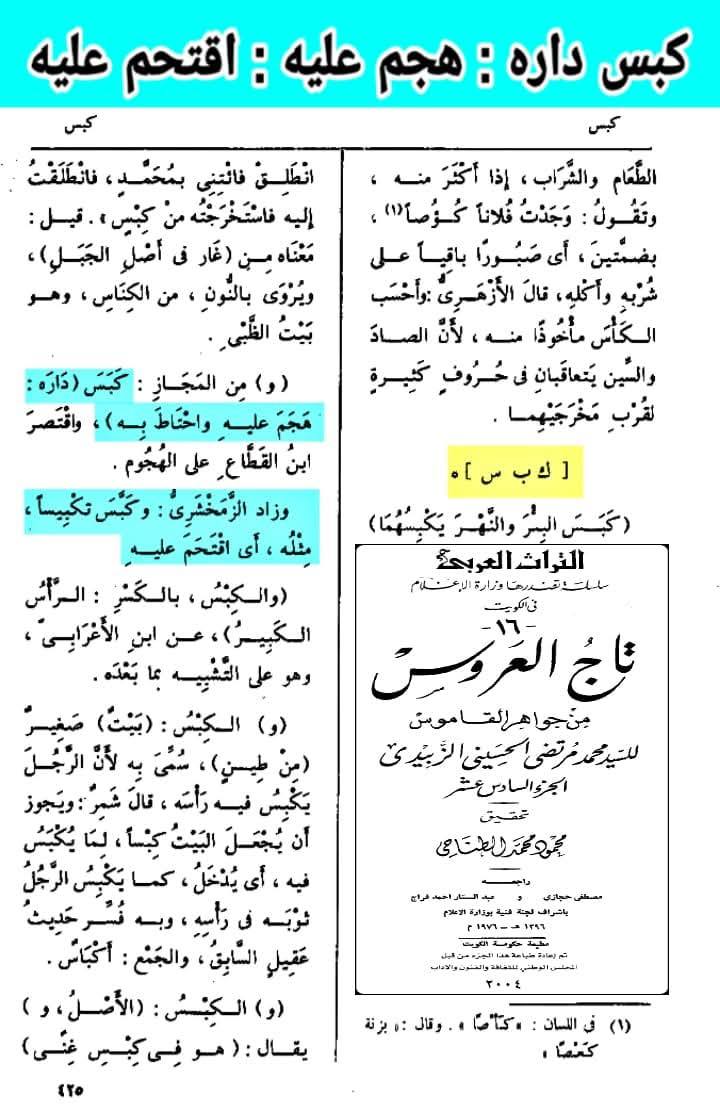 كبس داره : هجم عليه : اقتحم عليه
كبس
كبس
الطَّعَام والشَّرَاب ، إذا أَكْثَرَ منه ،
وتَقُولُ : وَجَدْتُ فُلَاناً كُؤُصاً(١) ،
بضمتين ، أى صَبُورًا باقِياً على
شُرْبِهِ وأَكْلِهِ، قالَ الأَزْهَرِىُّ :وأَحْسَب
الكَأْسَ مأْخُوذًا منه ، لأَنَّ الصادَ
والسِّين يَتعاقَبان فى حُرُوفٍ كَثِيرةٍ
لقُرْبِ مَخْرَجَيْهِما .
[ ك ب س ] *
(كَبَسَ البِئْرَ والنَّهْرَ يَكْبِسُهُمَا)
التراث العربى
سلسلة تصدرها وزارة الإعلام
فى الكويت
-١٦-
تاج العروس
من جواهر القاموس
للسيد محمد مرتضى الحسينى الزبيدى
الجزء السادس عشر
تحقيق
محمود محمد الطناحى
راجعه
مصطفى حجازى و عبد الستار احمد فراج
باشراف لجنة فنية بوزارة الاعلام
١٣٩٦ هـ - ١٩٧٦ م
مطبعة حكومة الكويت
تم إعادة طباعة هذا الجزء من قبل
المجلس الوطني للثقافة والفنون والآداب
٢٠٠٤
(١) فى اللسان : «كَأْصًا » . وقال :« بزنة
كَعْصًا »
انْطَلِقْ فائْتِنِي بمُحَمَّدٍ، فانْطَلَقْتُ
إليه فاسْتَخْرَجْتُه مِنْ كِبْسٍ ». قيل :
مَعْنَاه مِن (غَار فى أَصْلِ الجَبَلِ)،
ويُرْوَى بالنُّونِ ، من الكِنَاسِ ، وهو
بَيْتُ الظَّبْىِ .
(و) مِن المَجَازِ : كَبَسَ (دَارَه :
هَجَمَ عليهِ واحْتَاطَ بِه)، واقْتصَرَ
ابنُ القَطَّاعِ على الهُجُومِ .
وزاد الزَّمَخْشَرِىُّ : وكَبَّسَ تكْبِيساً،
مِثْلُه ، أَى اقْتَحَمَ عليهِ
(والكِبْسُ ، بالكَسْرِ : الرَّأْسُ
الكَبِيرُ)، عن ابنِ الأَعْرَابِىِّ ،
وهو على التَّشْبِيه بما بَعْدَه .
(و) الكِبْسُ : (بَيْتٌ) صَغِيرٌ
(مِنْ طِينٍ)، سُمِّىَ بِه لأَنَّ الرَّجُلَ
يَكْبِسُ فيه رَأْسَه ، قالَ شَمِرٌ :ويَجوز
أَن يُجْعَلَ البَيْتُ كِبْساً، لِمَا يُكْبَسُ
فيه ، أَى يُدْخَلُ ، كما يَكْبِسُ الرَّجُلُ
ثَوْبَه فى رَأْسِه ، وبه فُسِّر حَدِيثُ
عَقِيلٍ السابِقُ ، والجَمْع : أَكْبَاسٌ .
(و) الكِبْسُ : (الأَصْلُ، و )
يقال : ( هو فِى كِبْسِ غِنًى)
٤٢٥